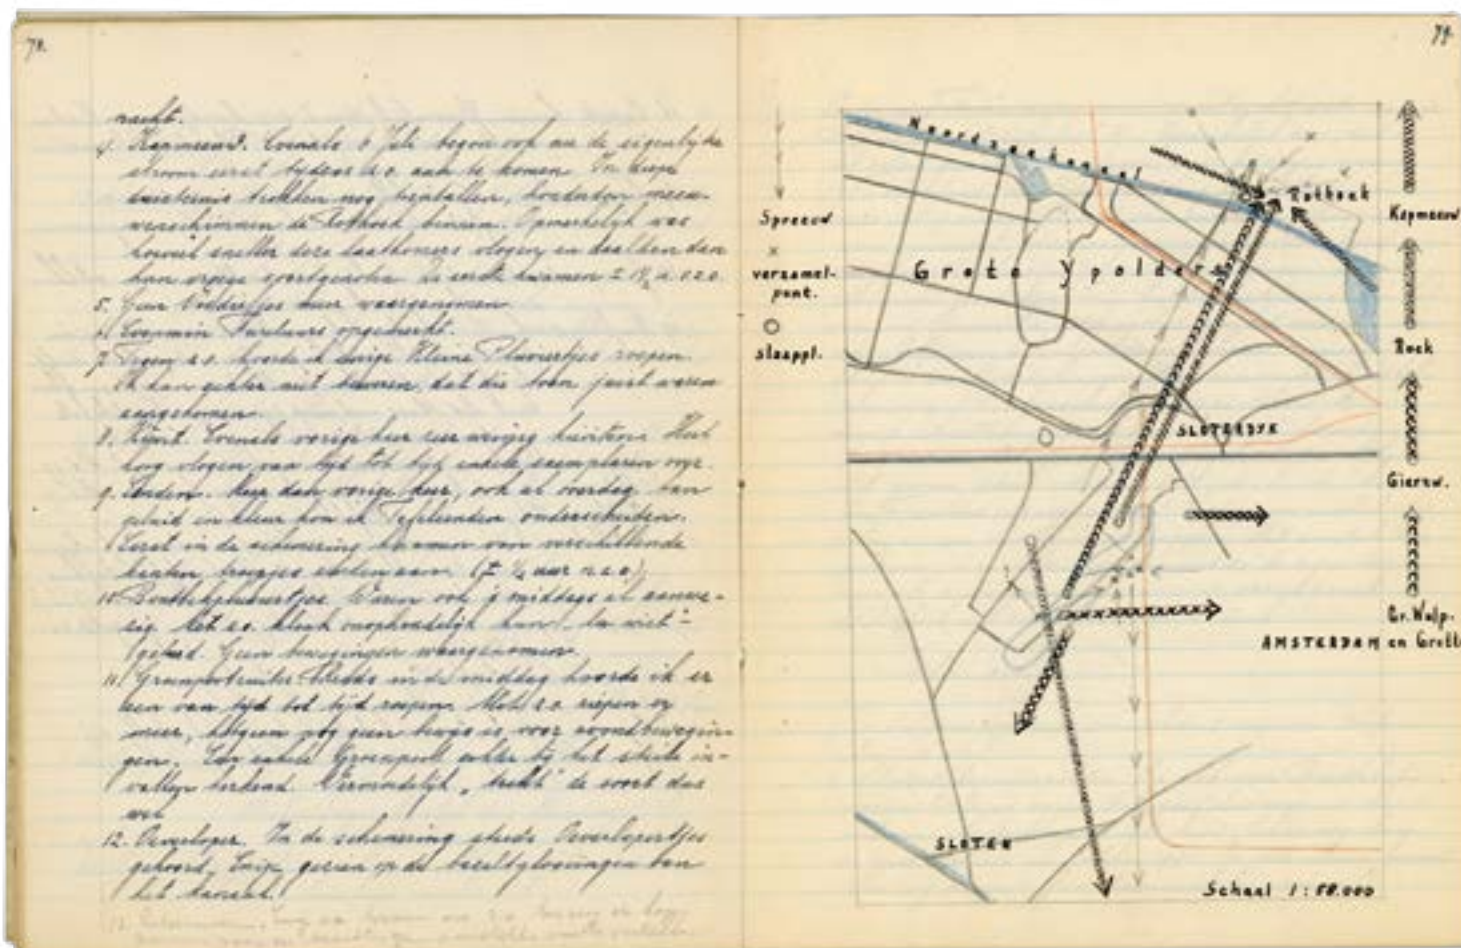 78.
nacht.
4. Kapmeeuw. Evenals 6 Juli begon ook nu de eigenlijke
stroom eerst tijdens z.o. aan te komen. In diepe
duisternis trokken nog tientallen, honderden meeuw-
verschimmen de Rothoek binnen. Opmerkelijk was
hoeveel sneller deze laatkomers vlogen en daalden dan
hun vroege soortgenoten. De eerste kwamen ± 1½ u. v.z.o.
5. Geen Visdiefjes meer waargenomen.
6. Evenmin Tureluurs opgemerkt.
7. z.o. hoorde ik enige Kleine Pluviertjes roepen.
Ik kan echter niet beweren, dat die toen juist waren
aangekomen.
8. Kievit. Evenals vorige keer zeer weinig kieviten. Heel
hoog vlogen van tijd tot tijd enkele exemplaren over.
9. Eenden. Meer dan vorige keer, ook al overdag. Aan
geluid en kleur kon ik Tafeleenden onderscheiden.
Eerst in de schemering kwamen van verschillende
kanten troepjes eenden aan (± ½ uur n.z.o.)
10. Bontbekpluviertjes. Waren ook 's middags al aanwe-
zig. Met z.o. klonk onophoudelijk hun "
geluid. Geen bewegingen waargenomen.
11. Groenpootruiter. Reeds in de middag hoorde ik er
een van tijd tot tijd roepen. Met z.o. riepen er
meer, hetgeen nog geen bewijs is voor avondbewegin-
gen. Een enkele Groenpoot echter bij het steile in-
vallen herkend. Vermoedelijk „trekt" de soort dus
wel.
12. Oeverloper. In de schemering steeds Oeverlopertjes
gehoord. Enige gezien op de
het kanaal.
79.
Noordzeekanaal
Rothoek
Kapmeeuw
Spreeuw
x
verzamel-
punt.
slaappl.
Grote Ypolders
Roek
SLOTERDYK
Gierzw.
Gr. Wulp.
en Grutto
AMSTERDAM
SLOTEN
Schaal 1:50.000